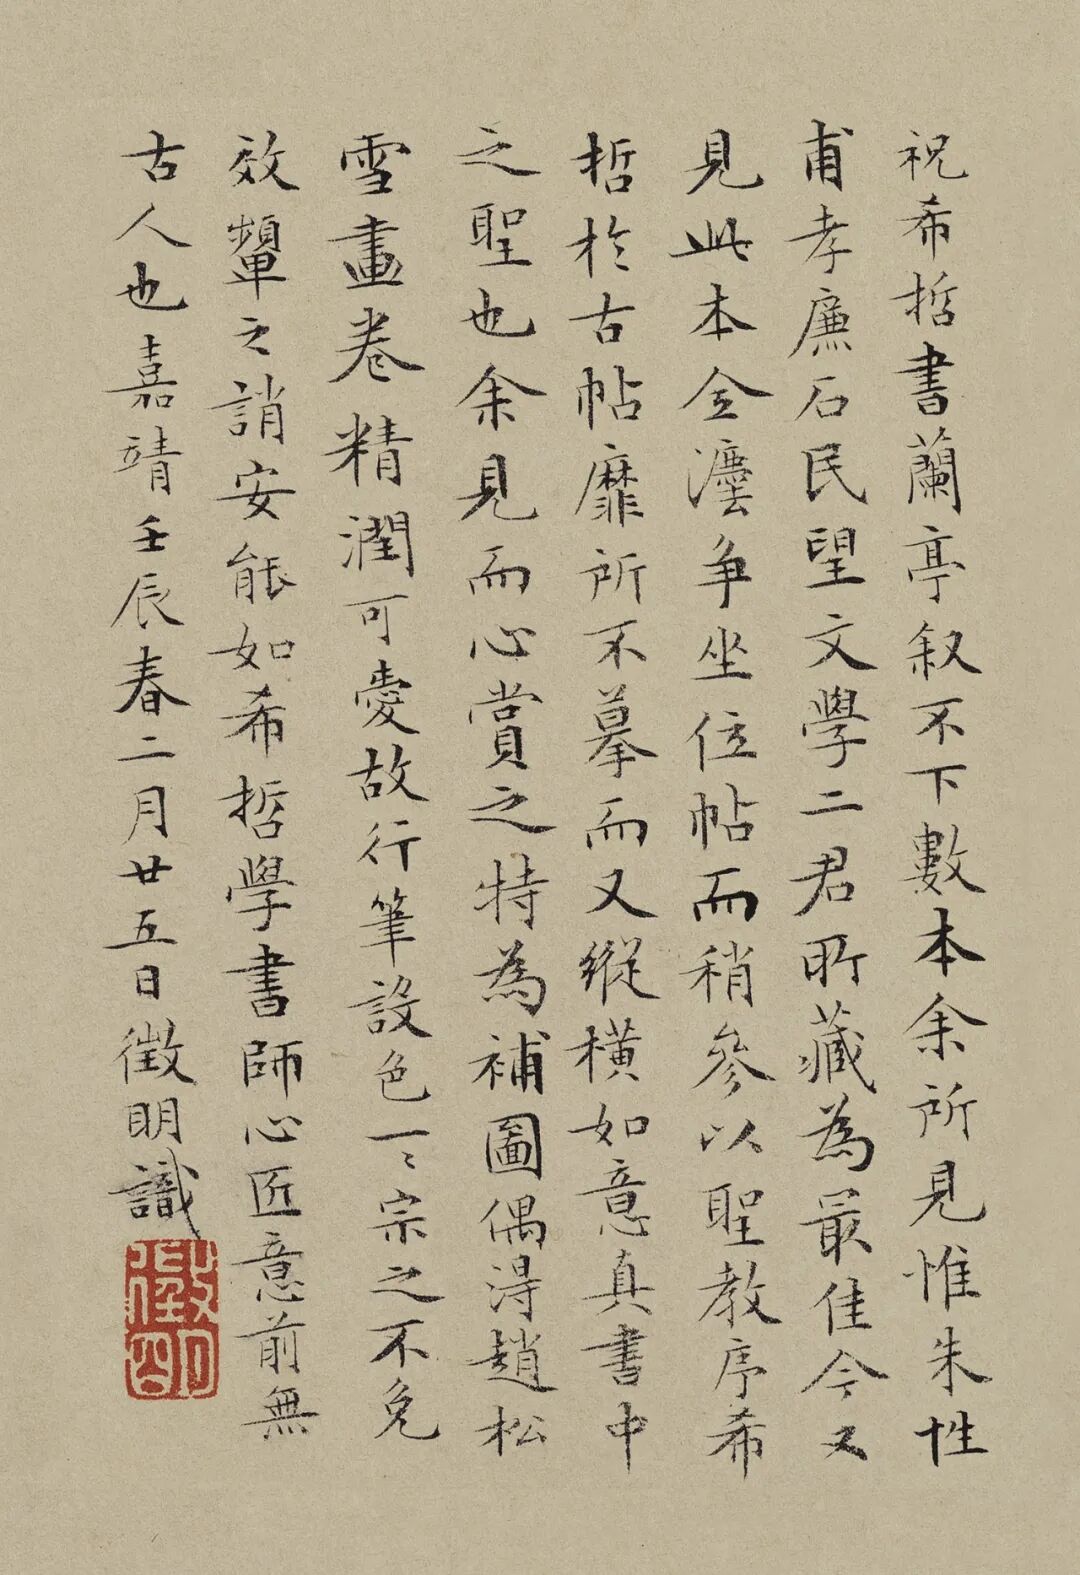 祝希哲書蘭亭叙不下數本余所見惟朱性
甫孝廉石民望文學二君所藏為最佳今又
見此本全灋争坐位帖而稍參以聖教序希
哲於古帖靡所不摹而又縱橫如意真書中
之聖也余見而心賞之特為補圖偶淂趙松
雪畫卷精潤可愛故行筆設色一〻宗之不免
效顰之誚安能如希哲學書師心匠意前無
古人也嘉靖壬辰春二月廿五日徵明識
徵明